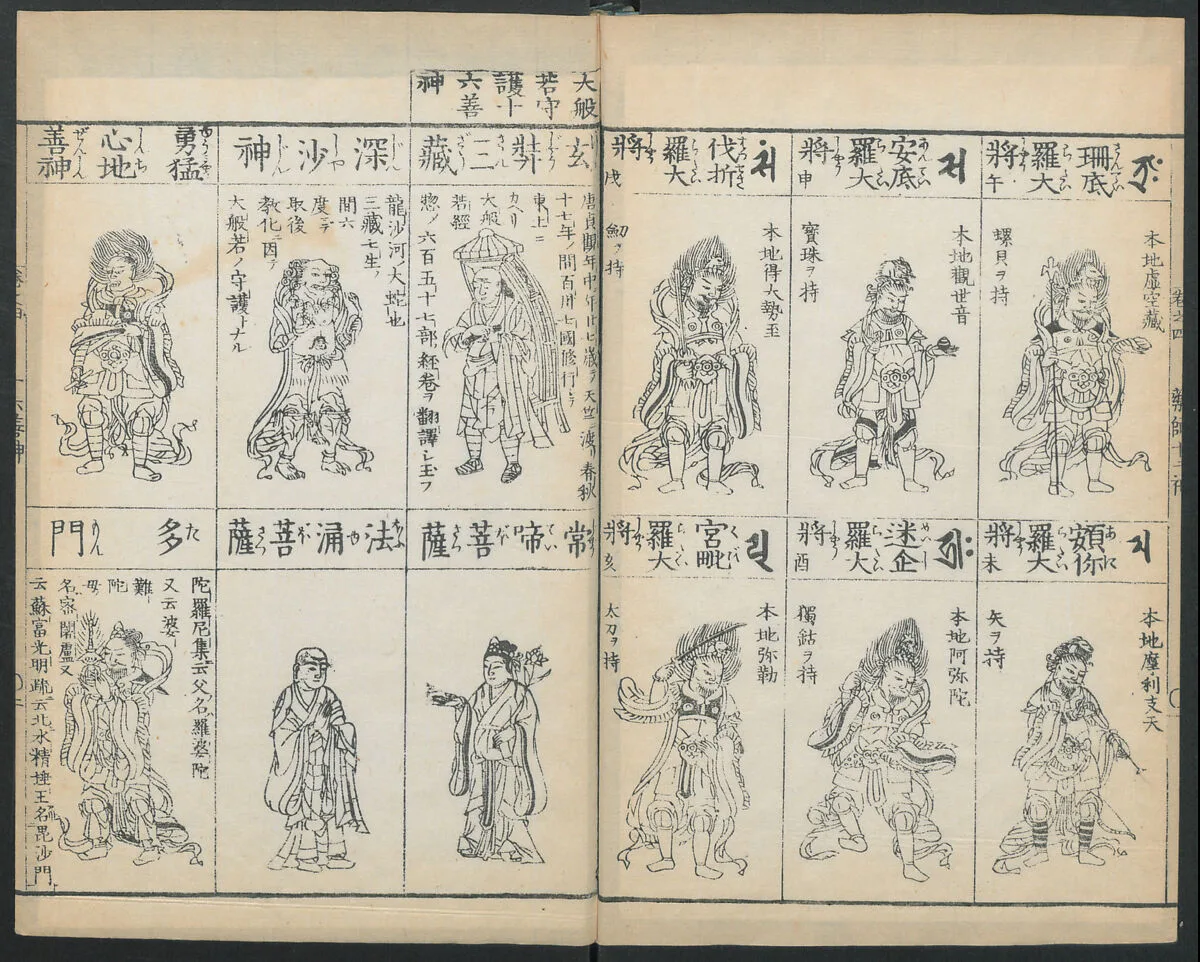 珊底
羅大
將
午
本地虚空藏
螺貝ヲ持
安底
羅大
將
申
本地觀世音
寳珠ヲ持
伐折
羅大
將
戌
本地得大勢至
釼ヲ持
頞你
羅大
將
未
本地摩利支天
矢ヲ持
迷企
羅大
將
酉
本地阿弥陀
獨鈷ヲ持
宮毗
羅大
將
亥
本地弥勒
太刀ヲ持
大般
若守
護十
六善
神
玄奘三藏
唐貞觀年中年廿七歳ヲ天竺ニ渡リ春秋
十七年ノ間百卅七國修行
東土ニ
カヘリ
大般
若經
惣ノ六百五十七部經巻ヲ翻譯シ玉フ
深沙神
龍沙河ノ大蛇也
三藏七生ノ
間六
度
取後
教化ニ因テ
大般若ノ守護トナル
勇猛
心地
善神
常啼菩薩
法涌菩薩
多門
陀羅尼集云父名羅婆陀
又云婆
難
陀
母
名密闍盧又
云蘇富光明疏云北水精埵王名毘沙門